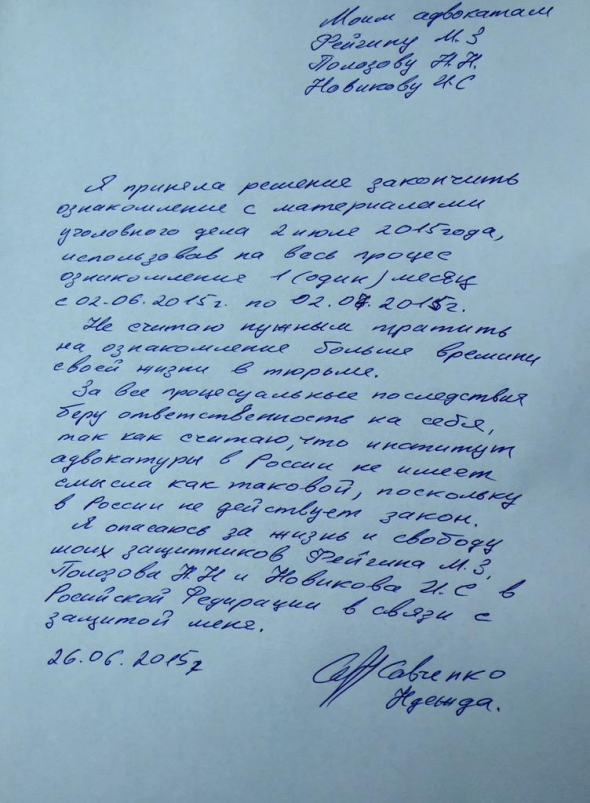 Моим адвокатам
Фейгину М.З
Полозову Н.Н.
Новикову И.С
Я приняла решение закончить
ознакомление с материалами
уголовного дела 2 июле 2015года,
использовав на весь процес
ознакомление 1 (один) месяц
с 02.06.2015г. по 02.07.2015г.
Не считаю нужным тратить
на ознакомление больше времини
своей жизни в тюрьме.
За все процесуальные последствия
беру ответственность на себя,
так как считаю, что институт
адвокатуры в России не имеет
смысла как таковой, поскольку
в России не действует закон.
Я опасаюсь за жизнь и свободу
моих защитников Фейгина М.З,
Полозова Н.Н и Новикова И.С в
Росийской Федирации в связи с
защитой меня.
26.06.2015г
Савченко
Надежда.